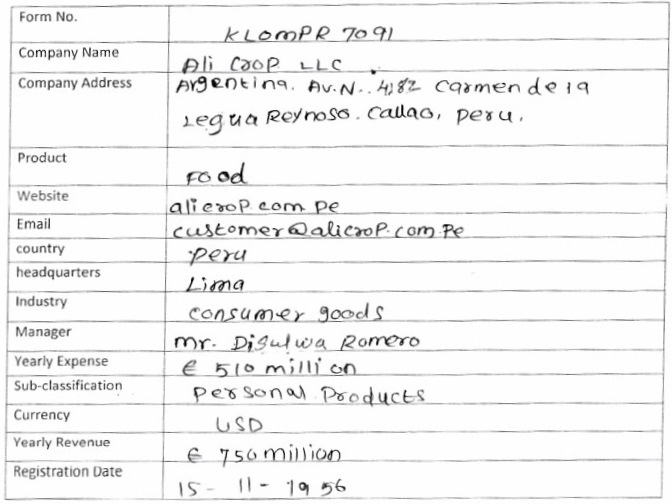 Form No. KLOMPR 7091
Company Name Ali Crop LLC.
Company Address Argentina. Av.N.. 4182 Carmen de la
Legua Reynoso. Callao, Peru.
Product Food
Website alicrop.com.pe
Email customer@alicrop.com.pe
country Peru
headquarters Lima
Industry consumer goods
Manager Mr. Disulwa Romero
Yearly Expense € 510 million
Sub-classification Personal Products
Currency USD
Yearly Revenue € 750 million
Registration Date 15 - 11 - 1956